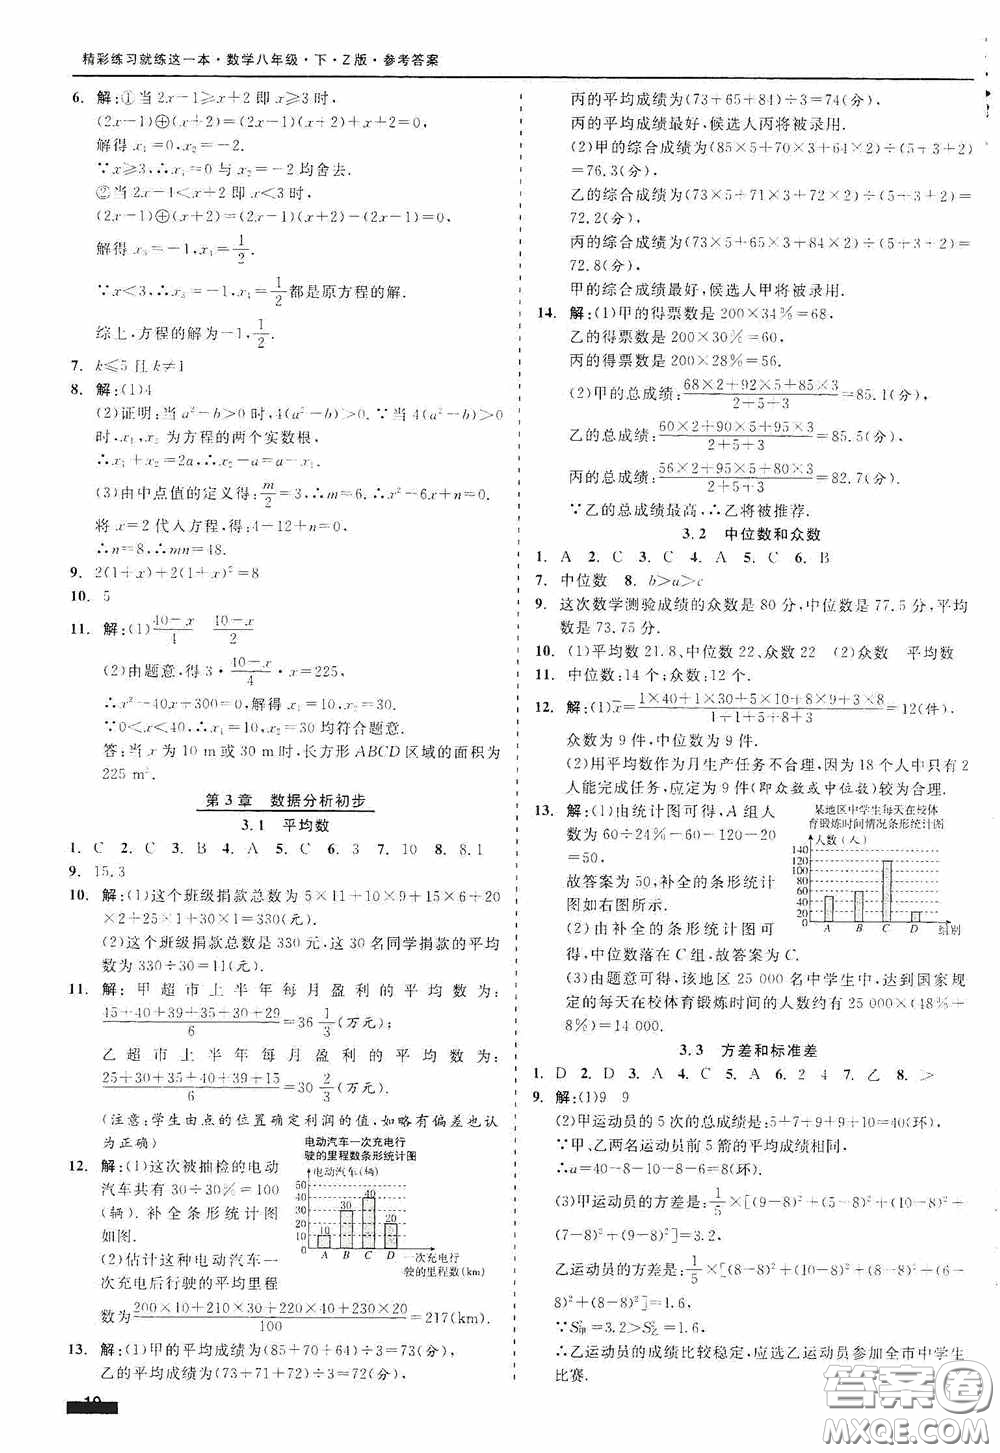 精彩练习就练这一本·数学八年级·下·Z版·参考答案
6. 解:①当2x-1≥x+2即x≥3时,
(2x-1)⊕(x+2)=(2x-1)(x+2)+(x+2)=0,
解得 x₁=0,x₂=-2.
∵x≥3,∴x₁=0,x₂=-2均舍去.
②当2x-1<x+2即x<3时,
(2x-1)⊕(x+2)=(2x-1)(x+2)-(2x-1)=0,
解得 x₃=-1,x₄=1/2.
∵x<3,∴x₃=-1,x₄=1/2都是原方程的解.
综上,方程的解为-1,1/2.
7. k≤5且k≠1
8. 解:(1)4
(2)证明:当a²-b>0时,4(a²-b)>0.∵当4(a²-b)>0
时,x₁,x₂为方程的两个实数根,
∴x₁+x₂=2a,∴x₂-a=a-x₁.
(3)由中点值的定义得:m/2=3,∴m=6,∴x²-6x+n=0.
将x=2代入方程,得:4-12+n=0,
∴n=8,∴mn=48.
9. 2(1+x)+2(1+x)²=8
10. 5
11. 解:(1)(40-x)/4 (40-x)/2
(2)由题意,得3·(40-x)/4·x=225,
∴x²-40x+300=0,解得x₁=10,x₂=30.
∵0<x<40,∴x=10,x=30均符合题意.
答:当x为10 m或30 m时,长方形ABCD区域的面积为
225 m².
第3章 数据分析初步
3.1 平均数
1. C 2. C 3. B 4. A 5. C 6. 3 7. 10 8. 8.1
9. 15.3
10. 解:(1)这个班级捐款总数为5×11+10×9+15×6+20
×2+25×1+30×1=330(元).
(2)这个班级捐款总数是330元,这30名同学捐款的平均
数为330÷30=11(元).
11. 解:甲超市上半年每月盈利的平均数为:
(45+40+39+35+30+29)/6=36 1/3(万元);
乙超市上半年每月盈利的平均数为:
(24+25+30+35+31+39)/6=30 2/3(万元).
(注意:学生由点的位置确定利润的值,若略有偏差也认为
正确)
12. 解:(1)这次被抽检的电动
汽车共有30÷30%=100
(辆).补全条形统计图
如图.
(2)估计这种电动汽车一
次充电后行驶的平均里程
数为(200×10+210×30+220×40+230×20)/100=217(km)
电动汽车一次充电行
驶的里程数条形统计图
电动汽车(辆)
50
40
30
20
10
0
10
30
40
20
A B C D
一次充电行
驶的里程数(km)
13. 解:(1)甲的平均成绩为(85+70+64)÷3=73(分),
乙的平均成绩为(73+71+72)÷3=72(分),
丙的平均成绩为(73+65+84)÷3=74(分),
丙的平均成绩最好,候选人丙将被录用.
(2)甲的综合成绩为(85×5+70×3+64×2)÷(5+3+2)
=76.3(分),
乙的综合成绩为(73×5+71×3+72×2)÷(5+3+2)=
72.2(分),
丙的综合成绩为(73×5+65×3+84×2)÷(5+3+2)=
72.8(分),
甲的综合成绩最好,候选人甲将被录用.
14. 解:(1)甲的得票数是200×34%=68,
乙的得票数是200×30%=60,
丙的得票数是200×28%=56.
(2)甲的总成绩:(68×2+92×5+85×3)/(2+5+3)=85.1(分),
乙的总成绩:(60×2+90×5+95×3)/(2+5+3)=85.5(分),
丙的总成绩:(56×2+95×5+80×3)/(2+5+3)=82.7(分),
∵乙的总成绩最高,∴乙将被推荐.
3.2 中位数和众数
1. A 2. C 3. C 4. A 5. C 6. B
7. 中位数 8. b>a>c
9. 这次数学测验成绩的众数是80分,中位数是77.5分,平均
数是73.75分.
10. (1)平均数21.8,中位数22,众数22 (2)众数 平均数
11. 中位数:14个;众数:12个.
12. 解:(1)x̄=(1×40+1×30+5×15+8×9+3×8)/(1+1+5+8+3)≈12(件).
众数为9件,中位数为9件.
(2)用平均数作为月生产任务不合理,因为18个人中只有2
人能完成任务,应定为9件(即众数或中位数)较为合理.
13. 解:(1)由统计图可得,A组人
数为60÷24%-60-120-20
=50,
故答案为50,补全的条形统计
图如右图所示.
(2)由补全的条形统计图可得,
中位数落在C组,故答案为C.
某地区中学生每天在校体
育锻炼时间情况条形统计图
人数(人)
140
120
100
80
60
40
20
0
A B C D 组别
(3)由题意可得,该地区25 000名中学生中,达到国家规
定的每天在校体育锻炼时间的人数约有25 000×(48%+
8%)=14 000.
3.3 方差和标准差
1. D 2. D 3. A 4. C 5. A 6. 2 4 7. 乙 8. >
9. 解:(1)9 9
(2)甲运动员的5次的总成绩是:5+7+9+9+10=40(环).
∵甲、乙两名运动员前5箭的平均成绩相同,
∴a=40-8-10-8-6=8(环).
(3)甲运动员的方差是:1/5×[(9-8)²+(5-8)²+(10-8)²+
(7-8)²+(9-8)²]=3.2,
乙运动员的方差是:1/5×[(8-8)²+(10-8)²+(8-8)²+(6-
8)²+(8-8)²]=1.6,
∵S²甲=3.2>S²乙=1.6,
∴乙运动员的成绩比较稳定,应选乙运动员参加全市中学生
比赛.
10
答案圈
MXQE.COM